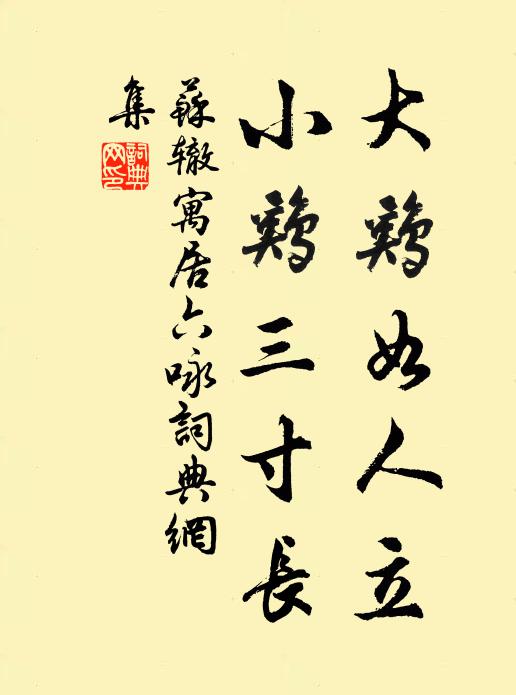 大鷄如人立
小鷄三寸長
蘇辙寓居六咏詞典網
集
詞典網印